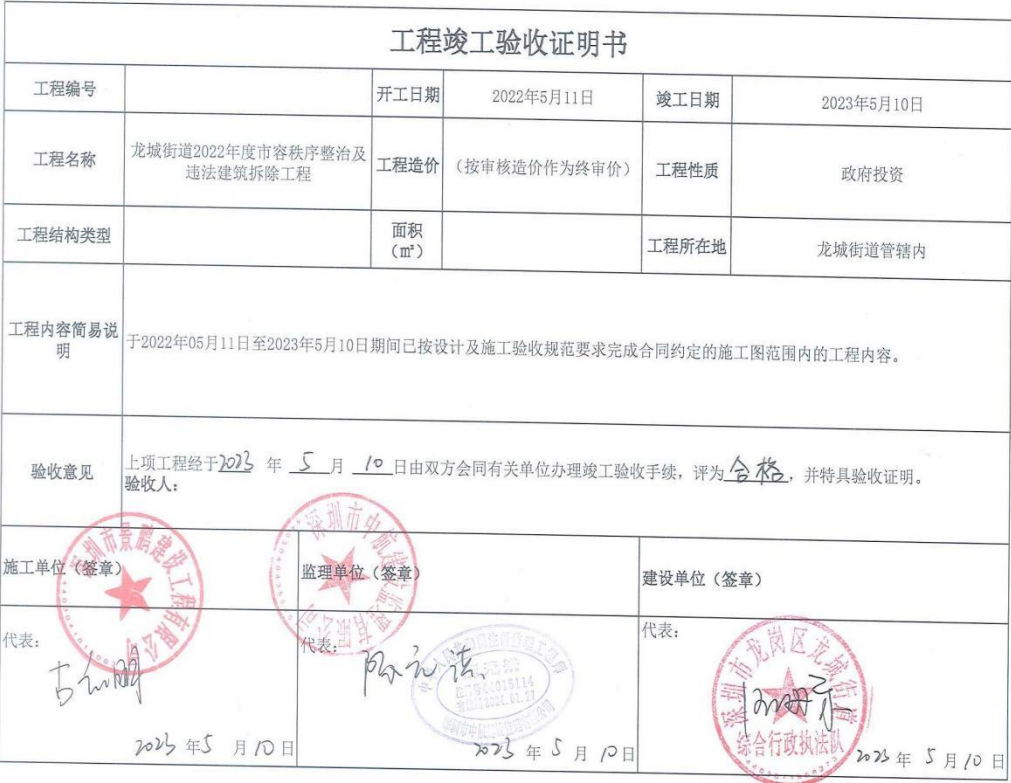 工程竣工验收证明书
工程编号
开工日期
2022年5月11日
竣工日期
2023年5月10日
工程名称
龙城街道2022年度市容秩序整治及
违法建筑拆除工程
工程造价
（按审核造价作为终审价）
工程性质
政府投资
工程结构类型
面积
（㎡）
工程所在地
龙城街道管辖内
工程内容简易说
明
于2022年05月11日至2023年5月10日期间已按设计及施工验收规范要求完成合同约定的施工图范围内的工程内容。
验收意见
上项工程经于2023 年 5 月 10 日由双方会同有关单位办理竣工验收手续，评为 合格，并特具验收证明。
验收人：
施工单位（签章）
深圳市景鹏建设工程有限公司
监理单位（签章）
深圳市中航建设监理有限公司
建设单位（签章）
代表：
2023 年 5 月 10 日
代表：
2023 年 5 月 10 日
代表：
深圳市龙岗区龙城街道
综合行政执法队
2023 年 5 月 10 日